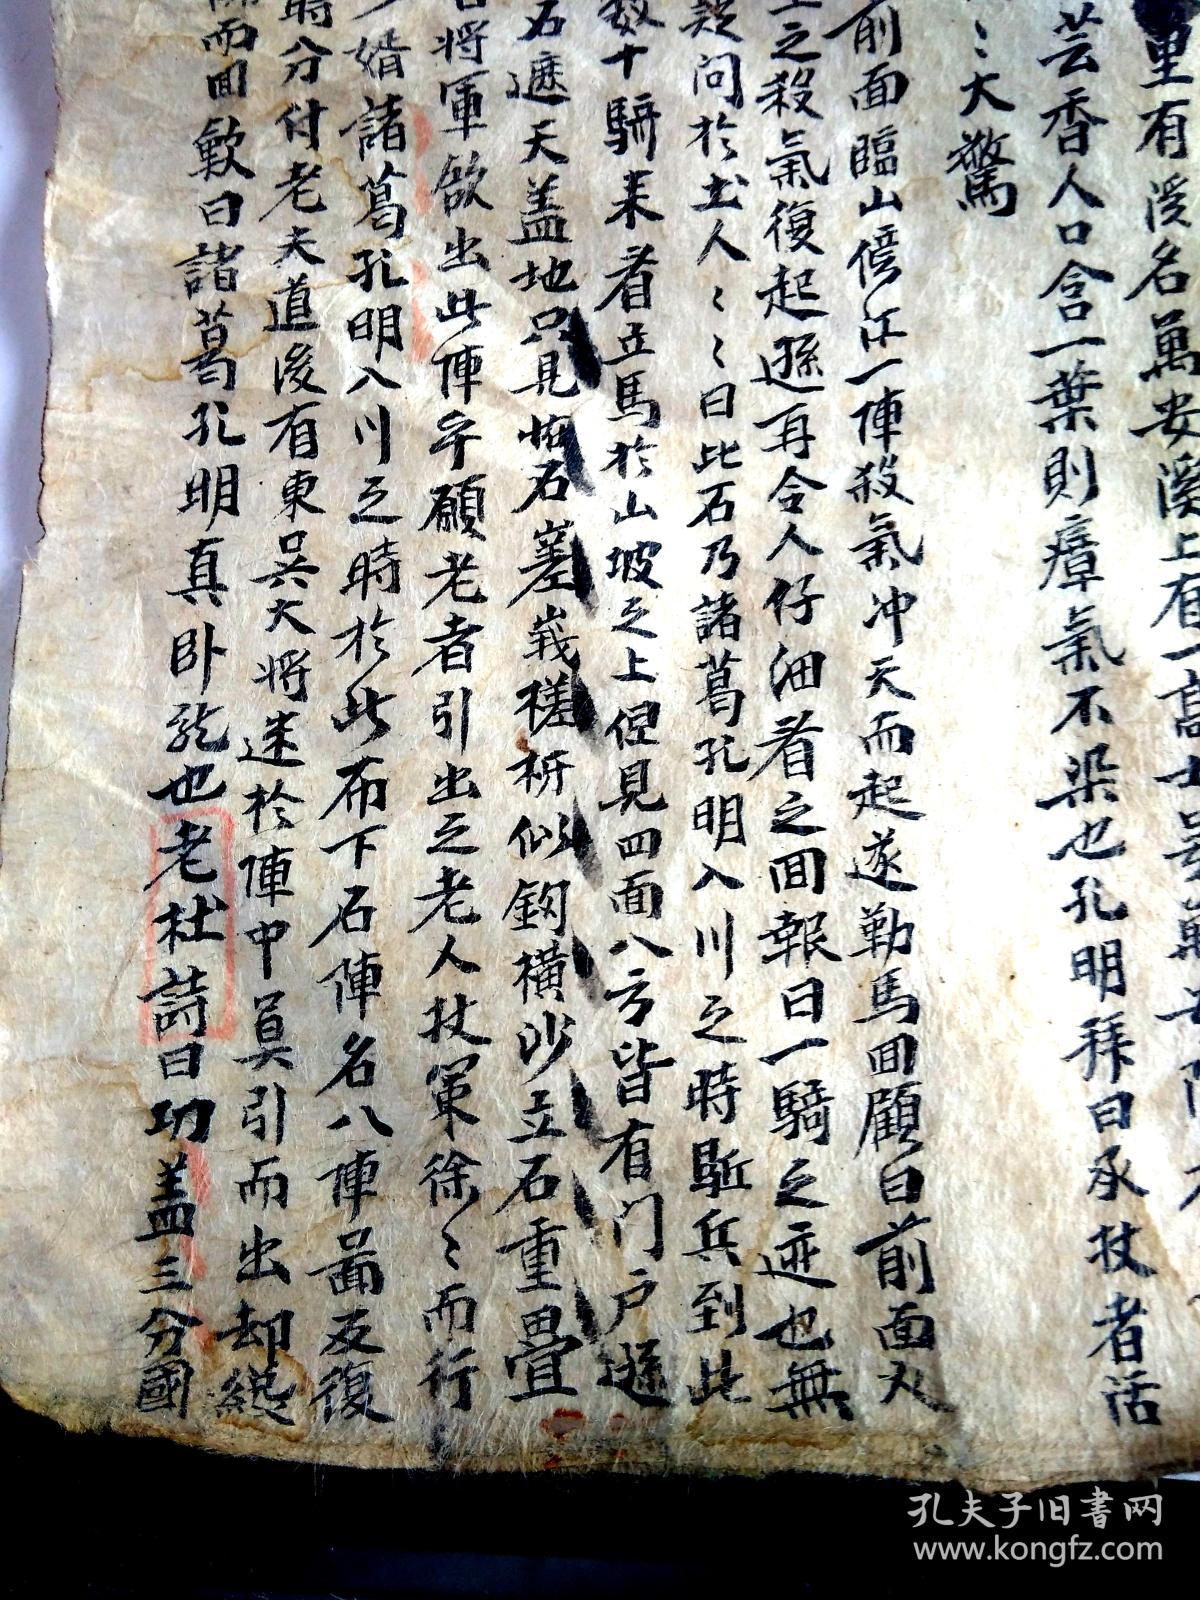 里有溪名萬安溪上有一高士号萬安隱
芸香人口含一葉則瘴氣不染也孔明拜曰承杖者活
〻大驚
前面臨山傍江一陣殺氣冲天而起遂勒馬回顧曰前面必
之殺氣復起遜再令人仔细看之回報曰一騎之迹也無
疑问於土人〻〻曰此石乃諸葛孔明入川之時駈兵到此
数十騎来看立馬於山坡之上但見四面八方皆有门户遜
石遮天盖地只見怪石嵳峩槎枒似釰橫沙立石重畳
将軍欲出此陣乎願老者引出之老人杖策徐〻而行
婿諸葛孔明入川之時於此布下石陣名八陣啚反復
時分付老夫道後有東吴大将迷於陣中莫引而出却縂
而回歎曰諸葛孔明真卧龍也老杜詩曰功盖三分國
孔夫子旧书网
www.kongfz.com